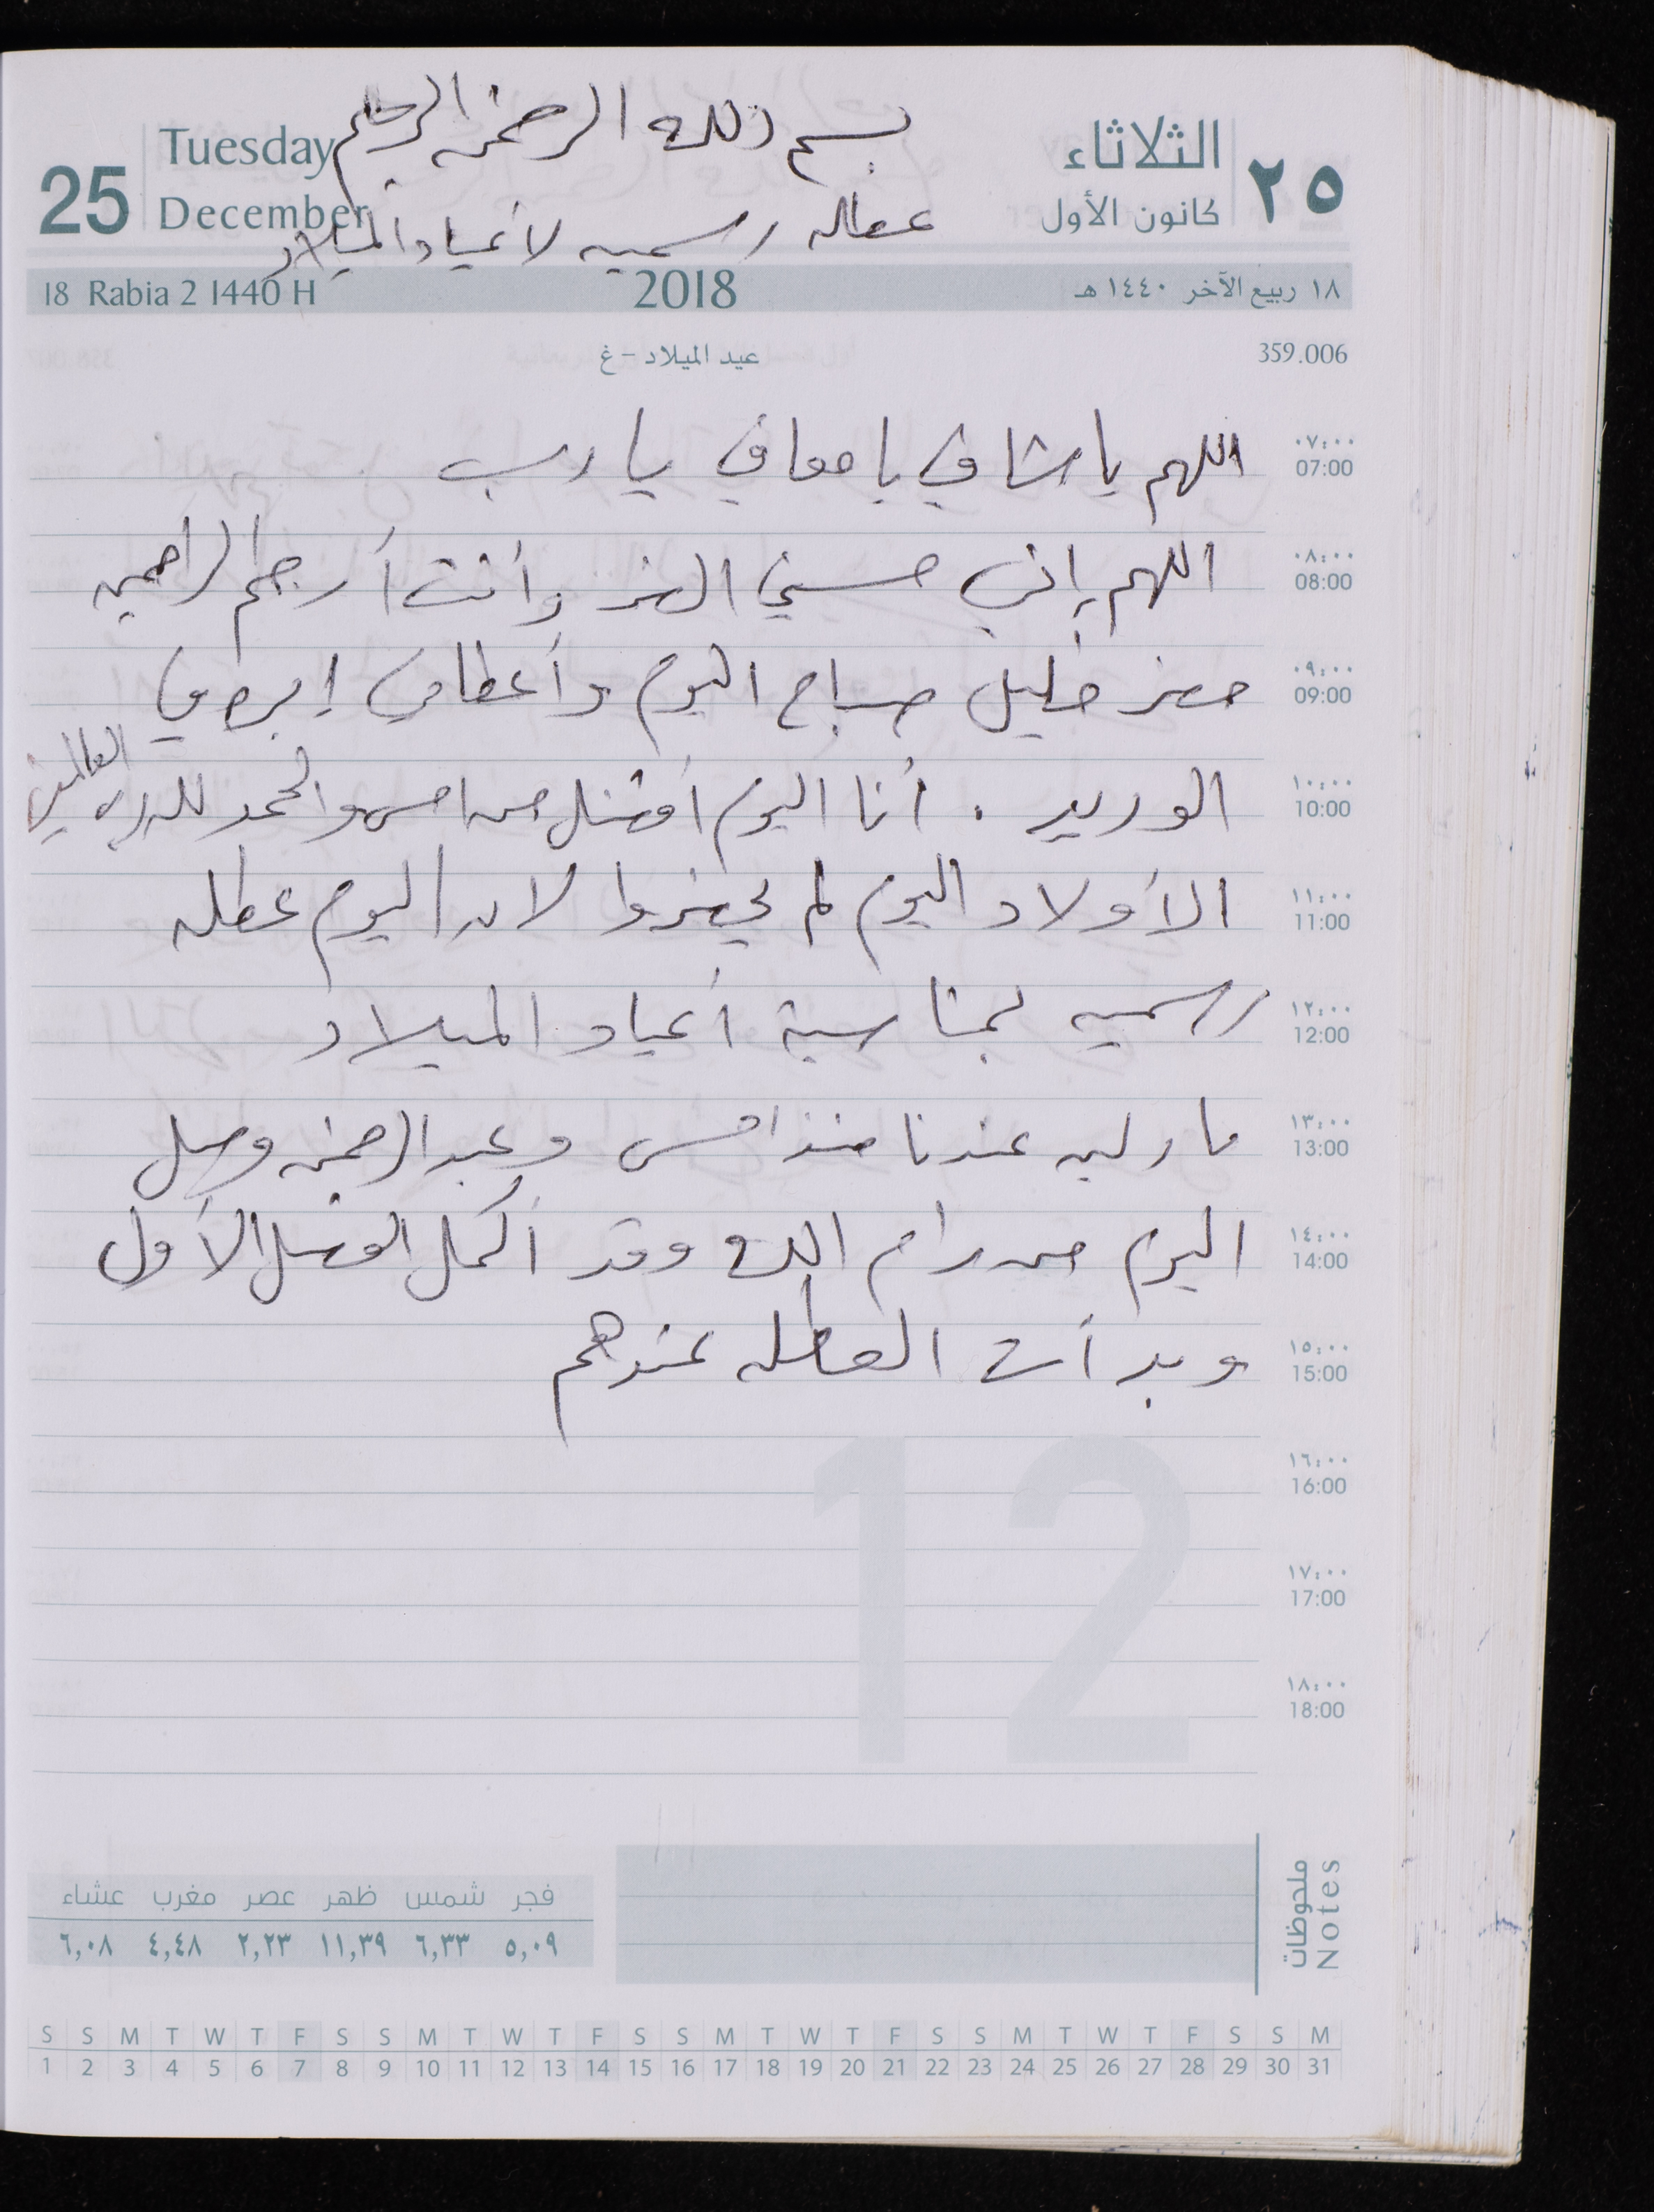 بسم الله الرحمن الرحيم
Tuesday
الثلاثاء
25
٢٥
December
كانون الأول
عطله رسميه لأعياد الميلاد
18 Rabia 2 1440 H
2018
١٨ ربيع الآخر ١٤٤٠ هـ
عيد الميلاد - غ
359.006
٠٧:٠٠
07:00
اللهم يا شافي يا معافي يا رب
٠٨:٠٠
08:00
اللهم إني مسني الضر وأنت أرحم الراحمين
٠٩:٠٠
09:00
حضر خليل صباح اليوم وأعطاني إبره في
١٠:٠٠
10:00
الوريد . أنا اليوم أفضل من امس والحمد لله رب العالمين
١١:٠٠
11:00
الأولاد اليوم لم يحضروا لان اليوم عطله
١٢:٠٠
12:00
رسميه بمناسبة أعياد الميلاد
١٣:٠٠
13:00
مارلين عندنا منذ امس وعبد الرحمن وصل
١٤:٠٠
14:00
اليوم من رام الله وقد أكمل الفصل الأول
١٥:٠٠
15:00
وبدأت العطله عندهم
١٦:٠٠
16:00
١٧:٠٠
17:00
١٨:٠٠
18:00
12
ملحوظات
Notes
فجر شمس ظهر عصر مغرب عشاء
٥,٠٩ ٦,٣٣ ١١,٣٩ ٢,٢٣ ٤,٤٨ ٦,٠٨
S S M T W T F S S M T W T F S S M T W T F S S M T W T F S S M
1 2 3 4 5 6 7 8 9 10 11 12 13 14 15 16 17 18 19 20 21 22 23 24 25 26 27 28 29 30 31